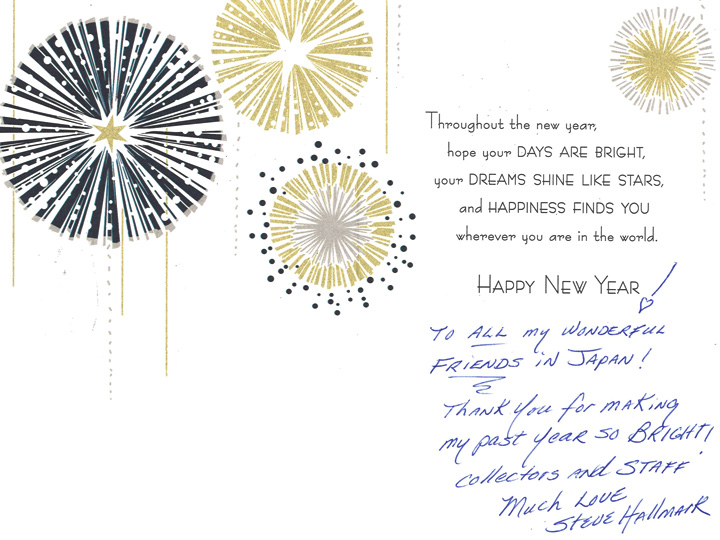 Throughout the new year,
hope your DAYS ARE BRIGHT,
your DREAMS SHINE LIKE STARS,
and HAPPINESS FINDS YOU
wherever you are in the world.
HAPPY NEW YEAR!
TO ALL my WONDERFUL
FRIENDS in JAPAN!
THANK you for MAKING
my past year so BRIGHT!
collectors and STAFF
Much LOVE
STEVE HALLMARK